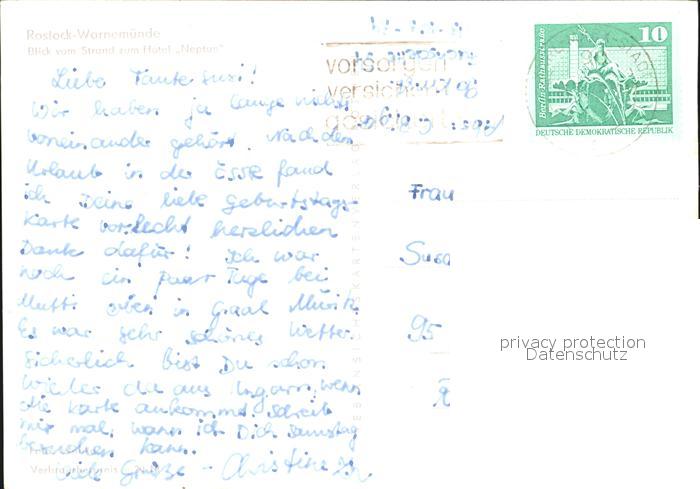 Rostock-Warnemünde
Blick vom Strand zum Hotel „Neptun"
Liebe Tante Susi!
Wir haben ja lange nichts
voneinander gehört. Nach dem
Urlaub in der ČSSR fand
ich Deine liebe Geburtstags-
karte vor. Recht herzlichen
Dank dafür! Ich war
noch ein paar Tage bei
Mutti oben in Graal Müritz.
Es war sehr schönes Wetter.
Sicherlich bist Du schon
wieder da aus Ungarn, wenn
die Karte ankommt. Schreib
mir mal, wann ich Dich samstag
besuchen kann.
Viele Grüße - Christine
vorsorgen
versich
Berlin · Rathausstraße
10
DEUTSCHE DEMOKRATISCHE REPUBLIK
Frau
Susa
95
privacy protection
Datenschutz